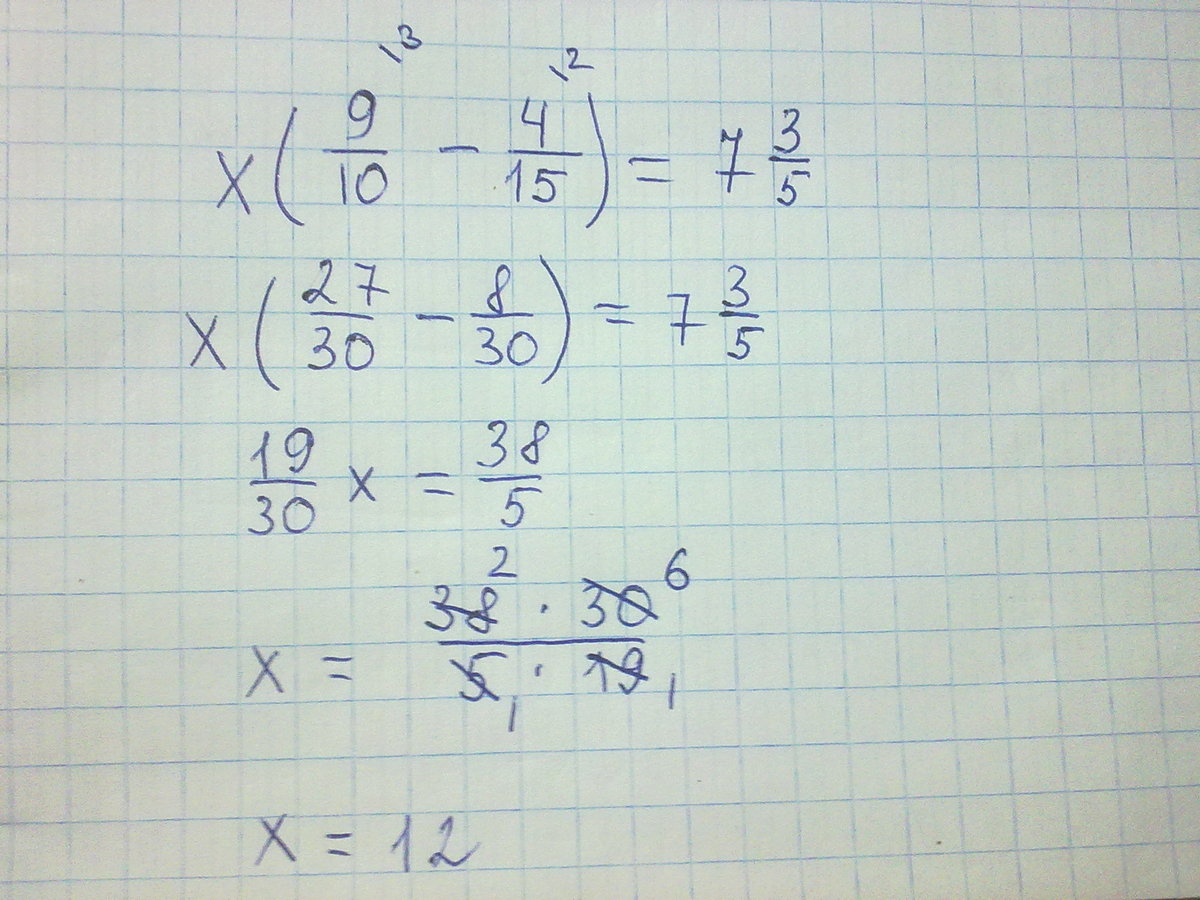 x(9/10 \3 − 4/15 \2) = 7 3/5
x(27/30 − 8/30) = 7 3/5
19/30 x = 38/5
x = 38 2 · 30 6 / 5 1 · 19 1
x = 12